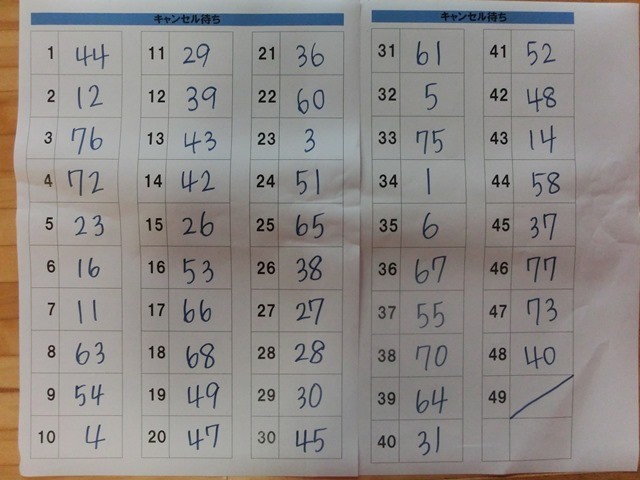 キャンセル待ち
1 44
2 12
3 76
4 72
5 23
6 16
7 11
8 63
9 54
10 4
11 29
12 39
13 43
14 42
15 26
16 53
17 66
18 68
19 49
20 47
21 36
22 60
23 3
24 51
25 65
26 38
27 27
28 28
29 30
30 45
キャンセル待ち
31 61
32 5
33 75
34 1
35 6
36 67
37 55
38 70
39 64
40 31
41 52
42 48
43 14
44 58
45 37
46 77
47 73
48 40
49